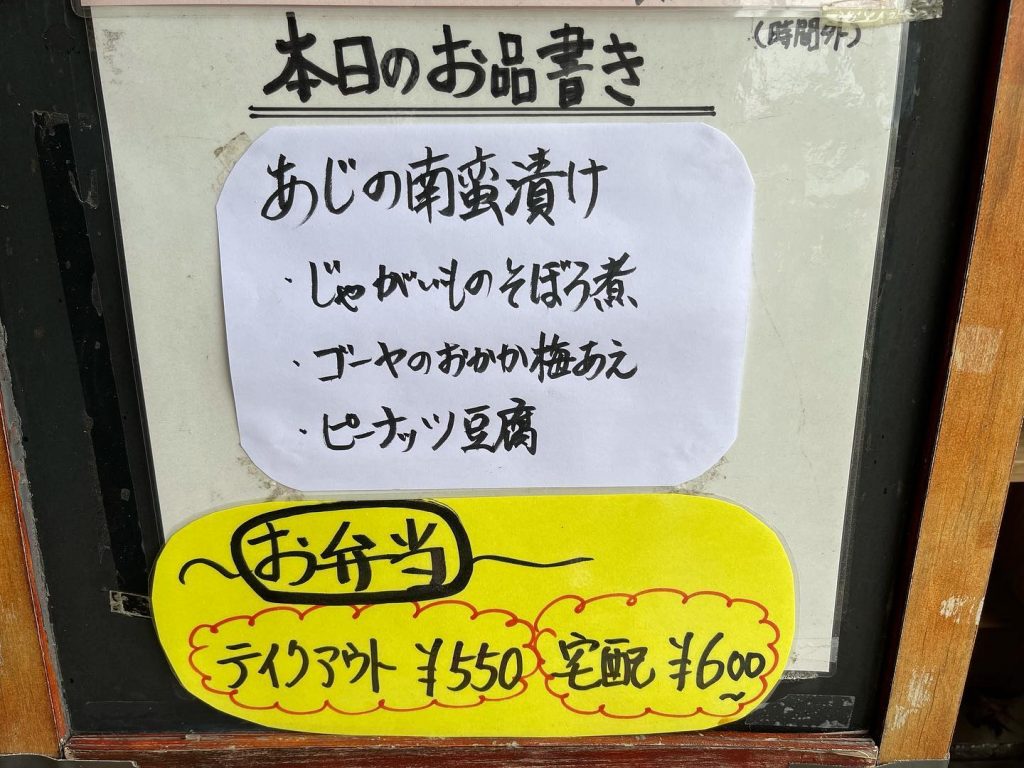 (時間外)
本日のお品書き
あじの南蛮漬け
・じゃがいものそぼろ煮
・ゴーヤのおかか梅あえ
・ピーナッツ豆腐
お弁当
テイクアウト ¥550
宅配 ¥600~